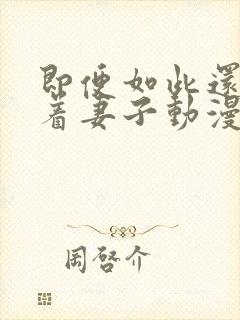 即便如此還
着妻子動漫
周啓介